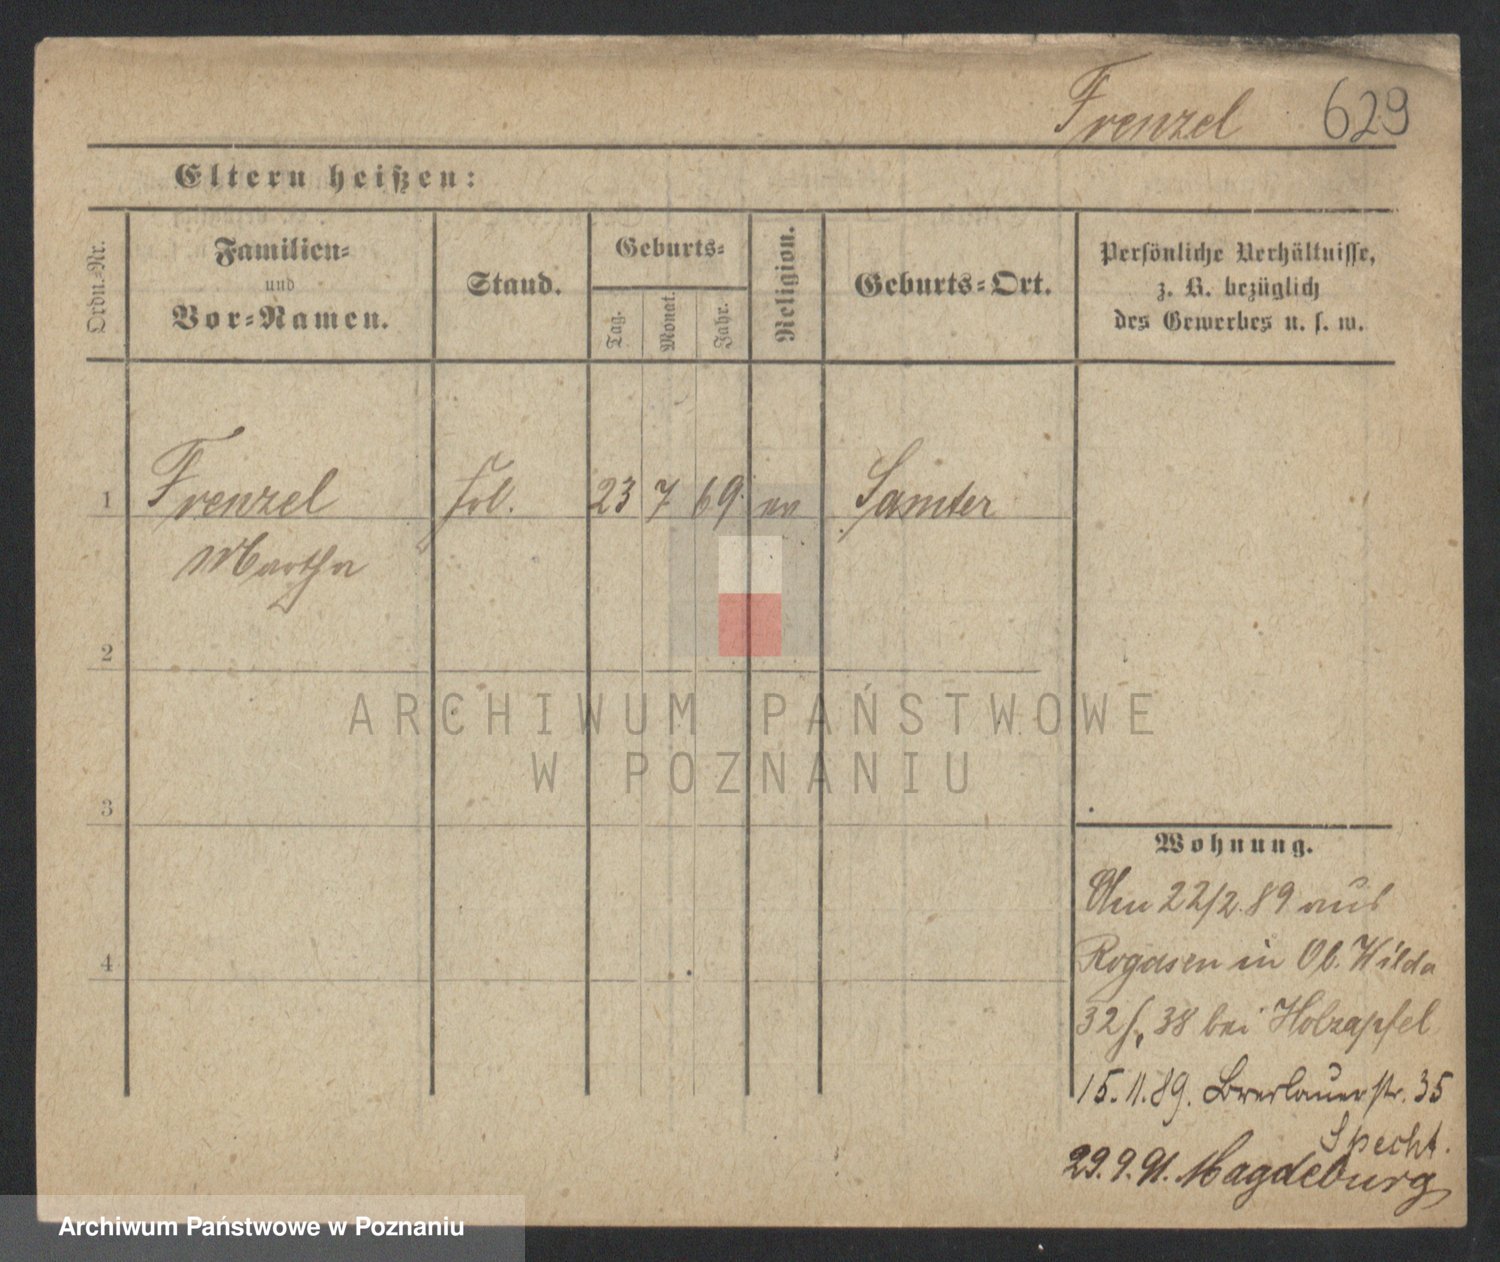 Frenzel 629
Eltern heißen:
Ordn.-Nr.
Familien-
und
Vor-Namen.
Stand.
Geburts-
Tag.
Monat.
Jahr.
Religion.
Geburts-Ort.
Persönliche Verhältnisse,
z. B. bezüglich
des Gewerbes u. s. w.
1 Frenzel Frl. 23 7 69 ev Samter
Martha
2
ARCHIWUM PAŃSTWOWE
W POZNANIU
3
Wohnung.
Am 22/2.89 aus
Rogasen in Ob. Wilda
32 38 bei Holzapfel
4
15.11.89. Breslauerstr. 35
Specht.
29.9.91. Magdeburg
Archiwum Państwowe w Poznaniu